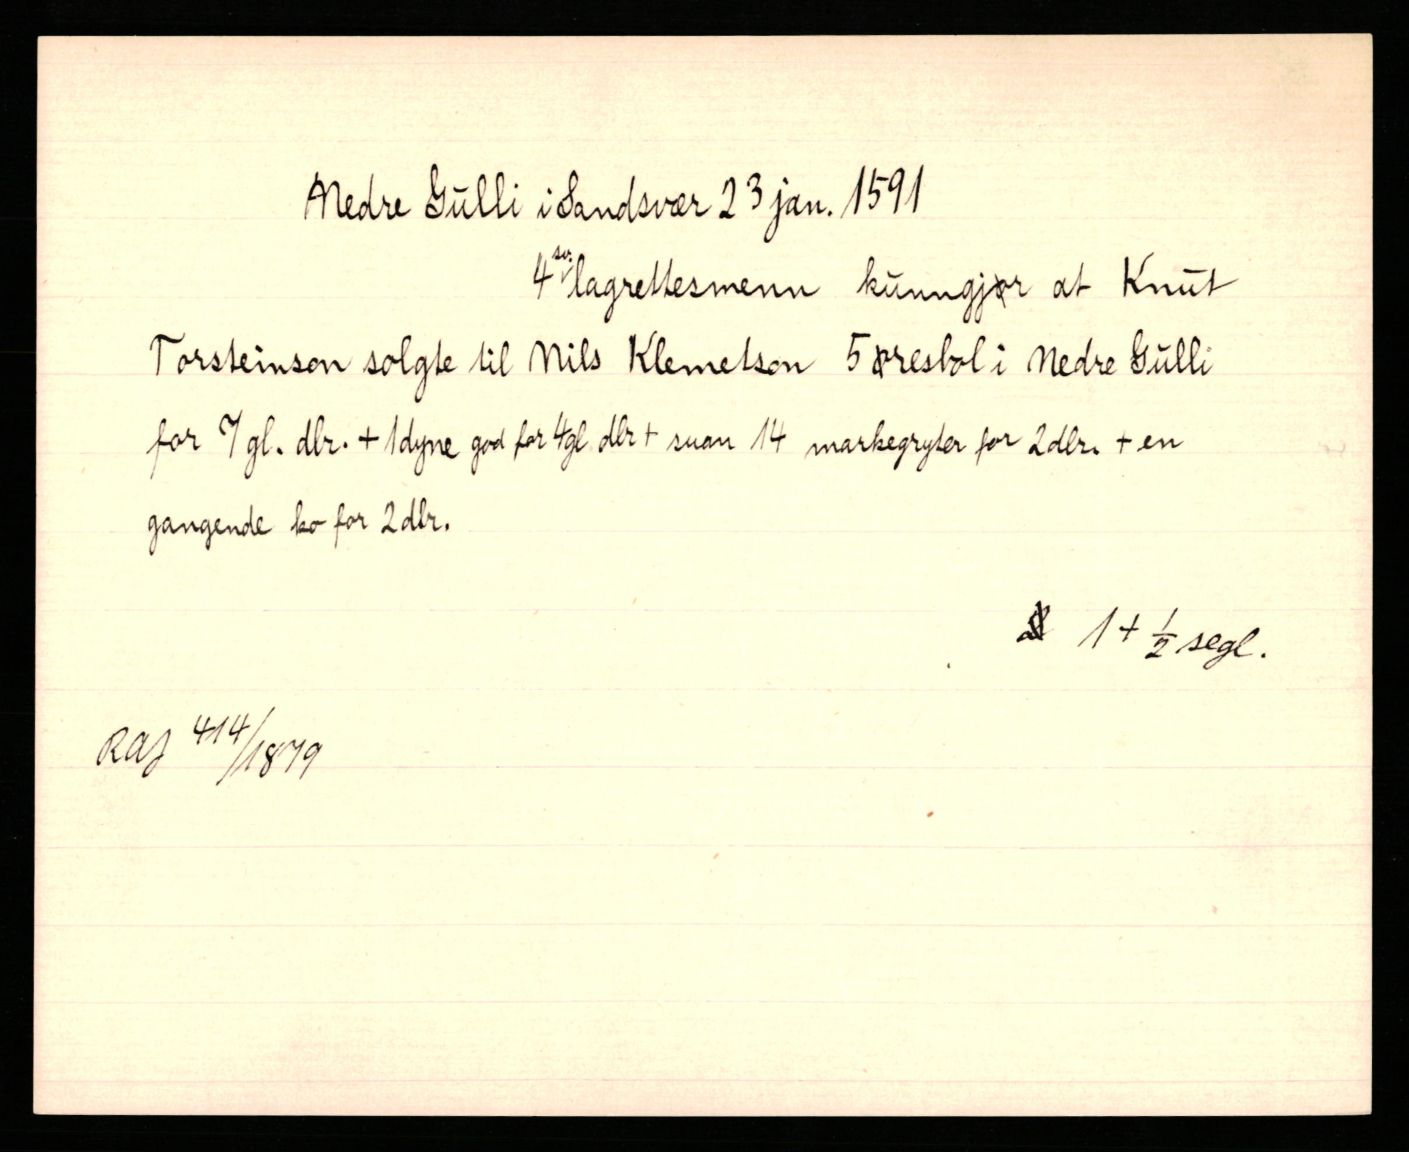 Nedre Gulli i Sandsvær 23 jan. 1591
4 sv. lagrettesmenn kunngjør at Knut
Torsteinson solgte til Nils Klemetson 5 øresbol i Nedre Gulli
for 7 gl. dlr. + 1 dyne god for 4 gl dlr + 14 markegryter for 2 dlr. + en
gangende ko for 2 dlr.
1 + 1/2 segl.
RAJ 414/1879